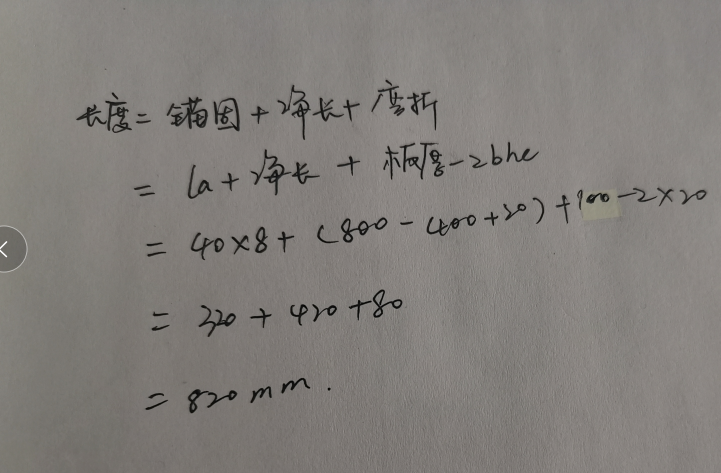 长度=锚固+净长+弯折
=la+净长+板厚-2bhc
=40×8+(800-400+20)+100-2×20
=320+420+80
=820mm.